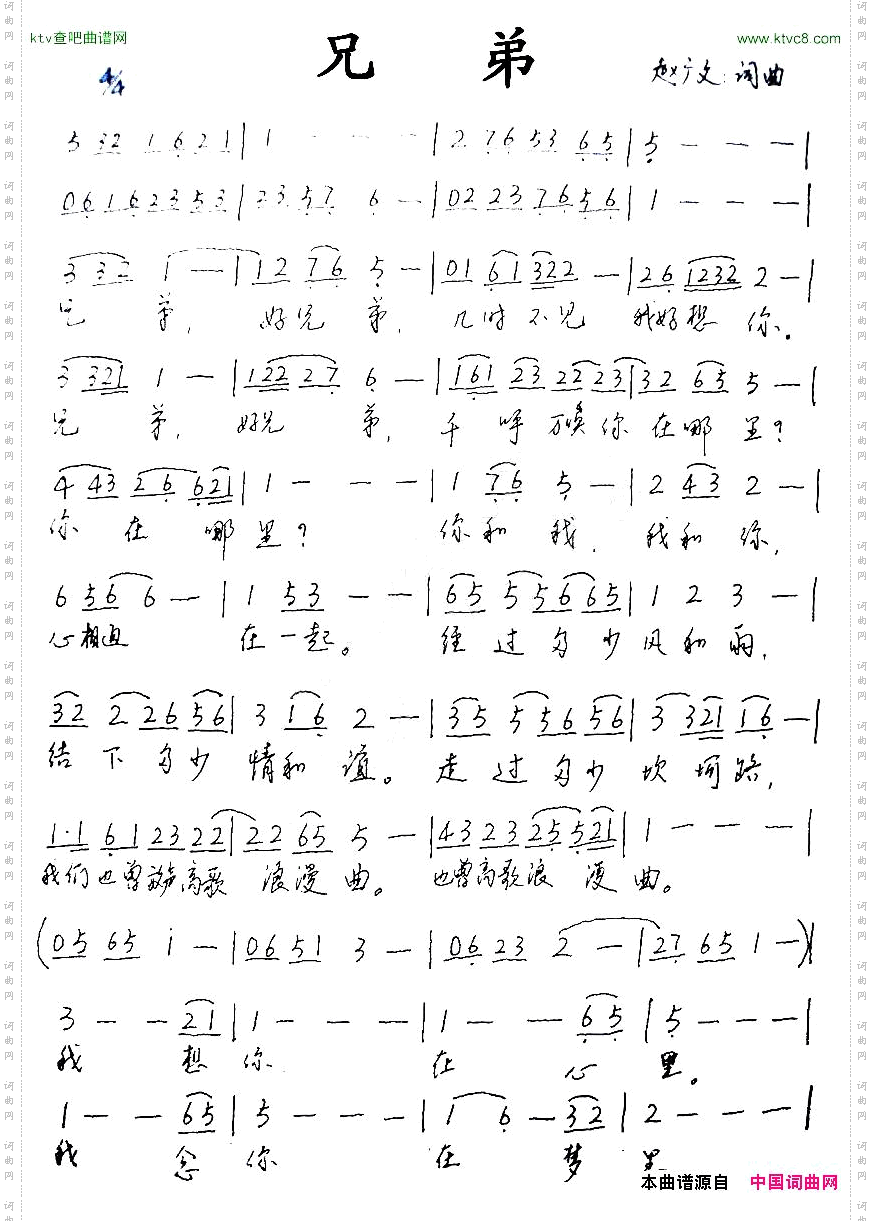 ktv查吧曲谱网 www.ktvc8.com
兄 弟
4/4 赵广文:词曲
5 32 1 6 2 1 | 1 - - - | 2 76 53 65 | 5 - - - |
06 16 23 53 | 23 57 6 - | 02 23 76 56 | 1 - - - |
3 32 1 - | 12 76 5 - | 01 61 322 - | 26 1232 2 - |
兄 弟, 好兄 弟, 几时不见 我好想 你。
3 321 1 - | 122 27 6 - | 161 23 22 23 | 32 65 5 - |
兄 弟, 好兄 弟, 千 呼 万唤你 在哪 里?
4 43 26 621 | 1 - - - | 1 76 5 - | 2 43 2 - |
你 在 哪 里? 你和 我, 我和 你,
6 56 6 - | 1 53 - - | 65 5 56 65 | 1 2 3 - |
心相通 在一起。 经 过 多 少 风和雨,
32 2 26 56 | 3 16 2 - | 35 5 56 56 | 3 321 16 - |
结 下 多少 情和 谊。 走 过 多少 坎 坷路,
1·1 61 23 22 | 22 65 5 - | 43 23 25 521 | 1 - - - |
我们也曾放声高歌 浪漫 曲。 也曾高歌浪 漫 曲。
(05 65 i - | 06 51 3 - | 06 23 2 - | 27 65 1 -) |
3 - - 21 | 1 - - - | 1 - - 65 | 5 - - - |
我 想 你 在 心 里。
1 - - 65 | 5 - - - | 1 6 - 32 | 2 - - - |
我 念 你 在 梦 里
本曲谱源自 中国词曲网
词曲网